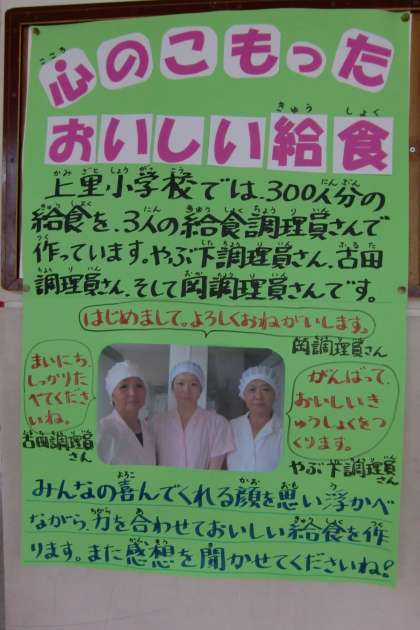 心のこもった
おいしい給食
上里小学校では、300人分の
給食を、3人の給食調理員さんで
作っています。やぶ下調理員さん、古田
調理員さん、そして岡調理員さんです。
はじめまして。よろしくおねがいします。
岡調理員さん
まいにち、
しっかりた
べてくださ
いね。
古田調理員
さん
がんばって、
おいしいき
ゅうしょくをつ
くります。
やぶ下調理員
さん
みんなの喜んでくれる顔を思い浮かべ
ながら、力を合わせておいしい給食を作
ります。また感想を聞かせてくださいね!